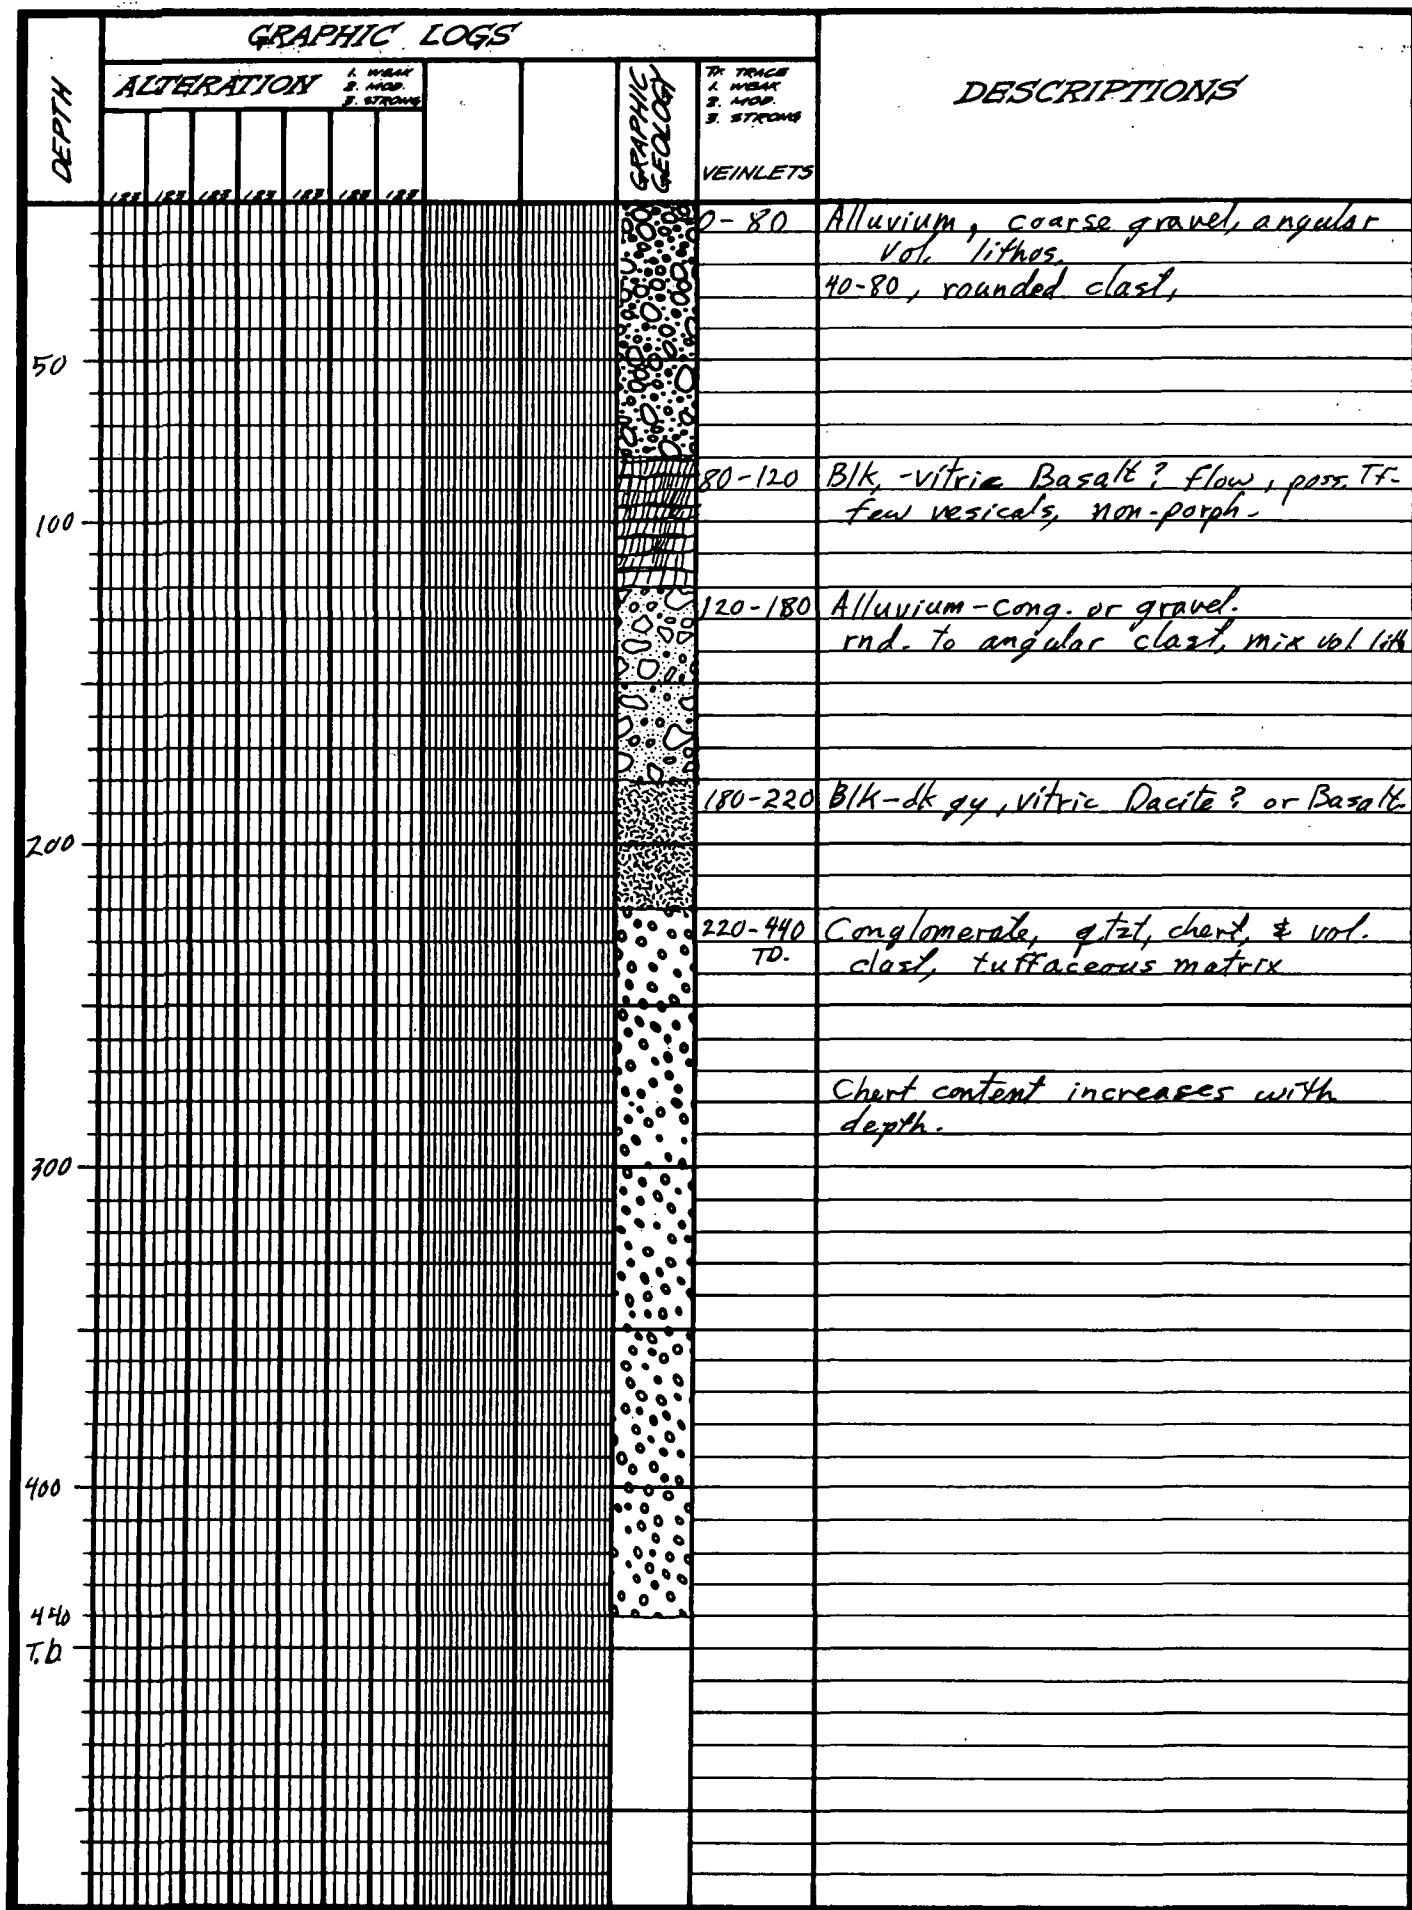 GRAPHIC LOGS
DEPTH
ALTERATION
1. WEAK
2. MOD.
3. STRONG
GRAPHIC
GEOLOGY
TR TRACE
1. WEAK
2. MOD.
3. STRONG
VEINLETS
DESCRIPTIONS
123 123 123 123 123 123 123
0-80 Alluvium, coarse gravel, angular
vol. lithos,
40-80, rounded clast,
50
80-120 Blk, -vitric Basalt? flow, poss. Tf-
few vesicals, non-porph-
100
120-180 Alluvium-cong. or gravel.
rnd. to angular clast, mix vol. lith
180-220 Blk-dk gy, vitric Dacite? or Basalt
200
220-440 Conglomerate, qtzt, chert, & vol.
TD. clast, tuffaceous matrix
Chert content increases with
depth.
300
400
440
T.D